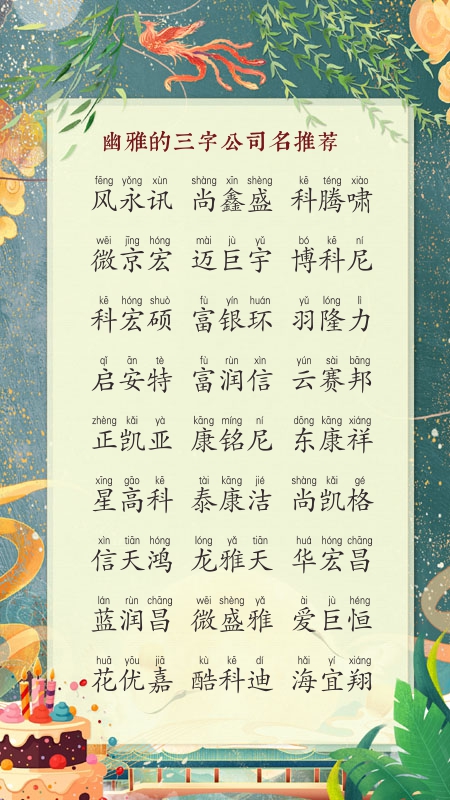 幽雅的三字公司名推荐
fēng yǒng xùn shàng xīn shèng kē téng xiào
风永讯 尚鑫盛 科腾啸
wēi jīng hóng mài jù yǔ bó kē ní
微京宏 迈巨宇 博科尼
kē hóng shuò fù yín huán yǔ lóng lì
科宏硕 富银环 羽隆力
qǐ ān tè fù rùn xìn yún sài bāng
启安特 富润信 云赛邦
zhèng kǎi yà kāng míng ní dōng kāng xiáng
正凯亚 康铭尼 东康祥
xīng gāo kē tài kāng jié shàng kǎi gé
星高科 泰康洁 尚凯格
xìn tiān hóng lóng yǎ tiān huá hóng chāng
信天鸿 龙雅天 华宏昌
lán rùn chāng wēi shèng yǎ ài jù héng
蓝润昌 微盛雅 爱巨恒
huā yōu jiā kù kē dí hǎi yí xiáng
花优嘉 酷科迪 海宜翔